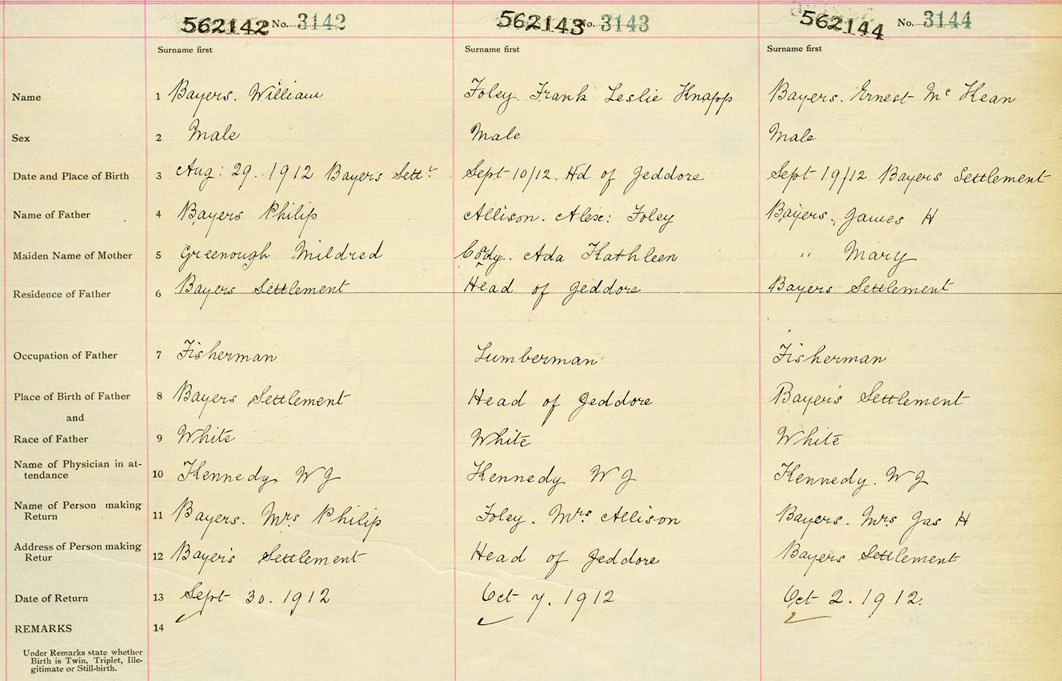 562142 No. 3142 562143 No. 3143 562144 No. 3144
Surname first Surname first Surname first
Name 1 Bayers. William Foley Frank Leslie Knapp Bayers. Ernest Mc Kean
Sex 2 Male Male Male
Date and Place of Birth 3 Aug: 29. 1912 Bayers Settt. Sept 10/12. Hd of Jeddore Sept 19/12 Bayers Settlement
Name of Father 4 Bayers Philip Allison. Alex: Foley Bayers, James H
Maiden Name of Mother 5 Greenough Mildred Cody. Ada Kathleen " Mary
Residence of Father 6 Bayers Settlement Head of Jeddore Bayers Settlement
Occupation of Father 7 Fisherman Lumberman Fisherman
Place of Birth of Father 8 Bayers Settlement Head of Jeddore Bayers Settlement
and
Race of Father 9 White White White
Name of Physician in at-
tendance 10 Kennedy W J Kennedy W J Kennedy. W J
Name of Person making
Return 11 Bayers. Mrs Philip Foley. Mrs Allison Bayers. Mrs Jas H
Address of Person making
Retur 12 Bayer's Settlement Head of Jeddore Bayers Settlement
Date of Return 13 Sept 30. 1912 Oct 7. 1912 Oct 2. 1912.
REMARKS 14
Under Remarks state whether
Birth is Twin, Triplet, Ille-
gitimate or Still-birth.